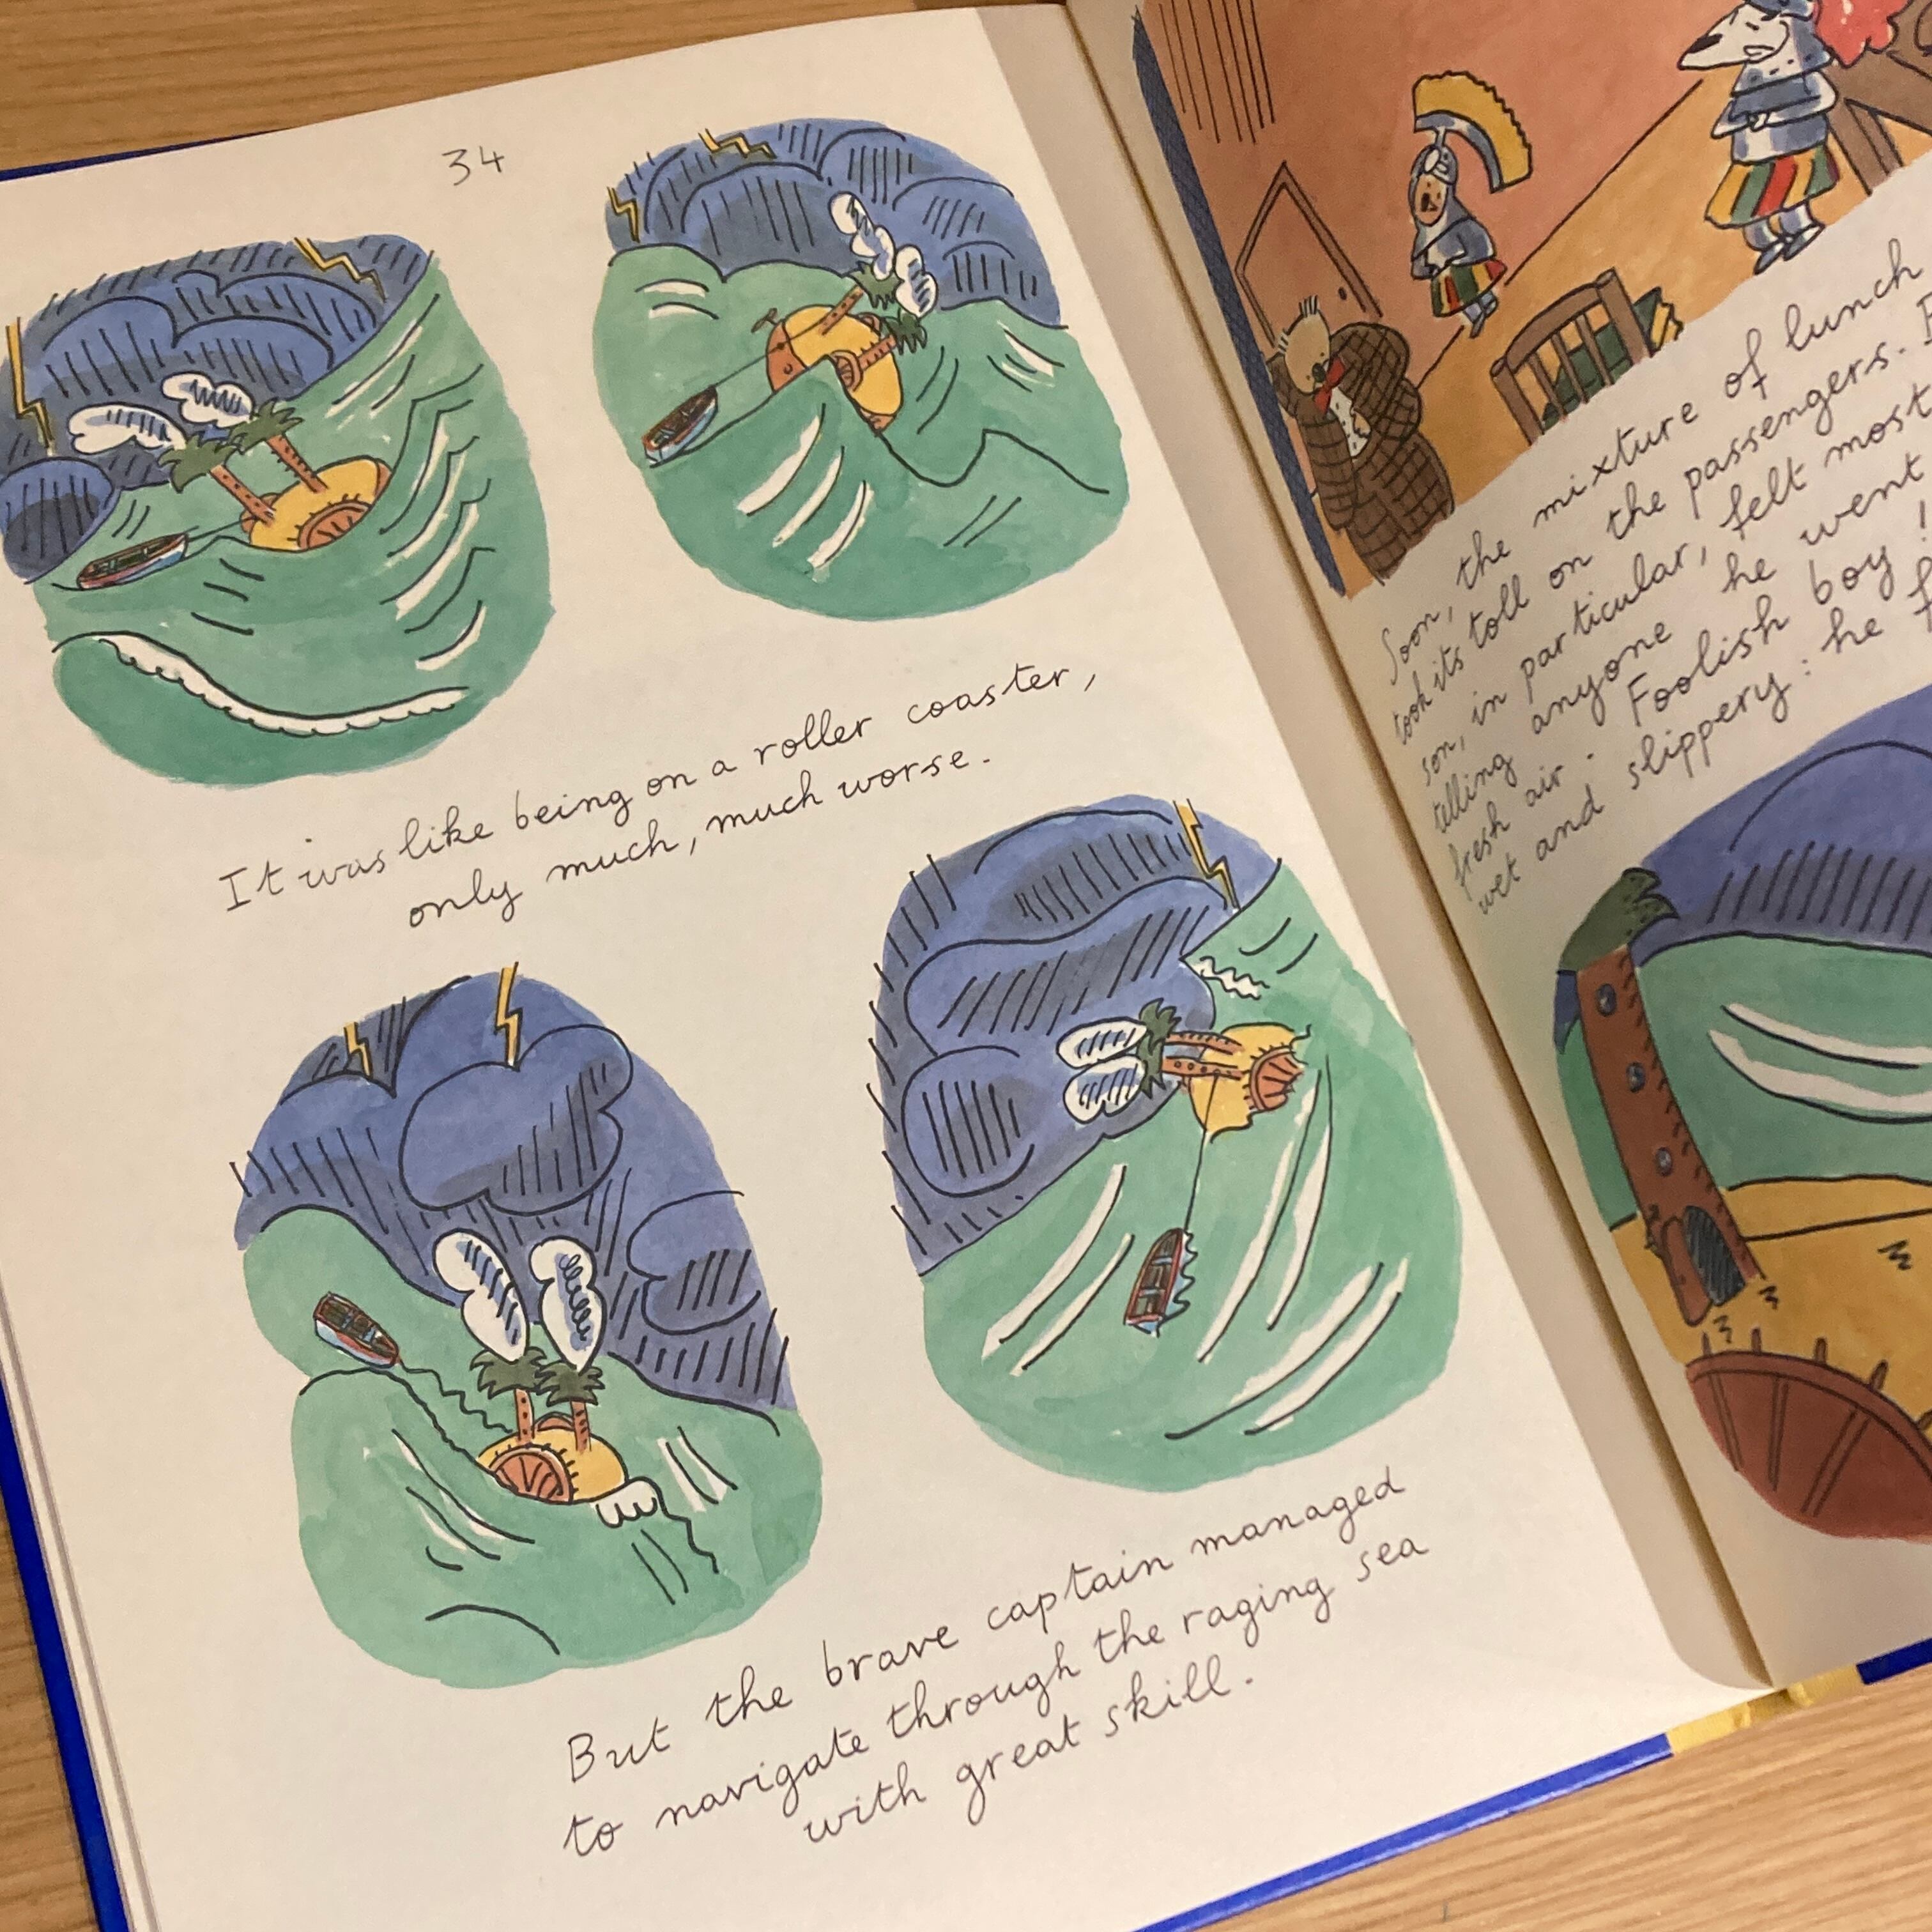 34
It was like being on a roller coaster,
only much, much worse.
But the brave captain managed
to navigate through the raging sea
with great skill.
Soon, the mixture of lunch
took its toll on the passengers.
son, in particular, felt most
telling anyone he went
fresh air. Foolish boy!
wet and slippery: he